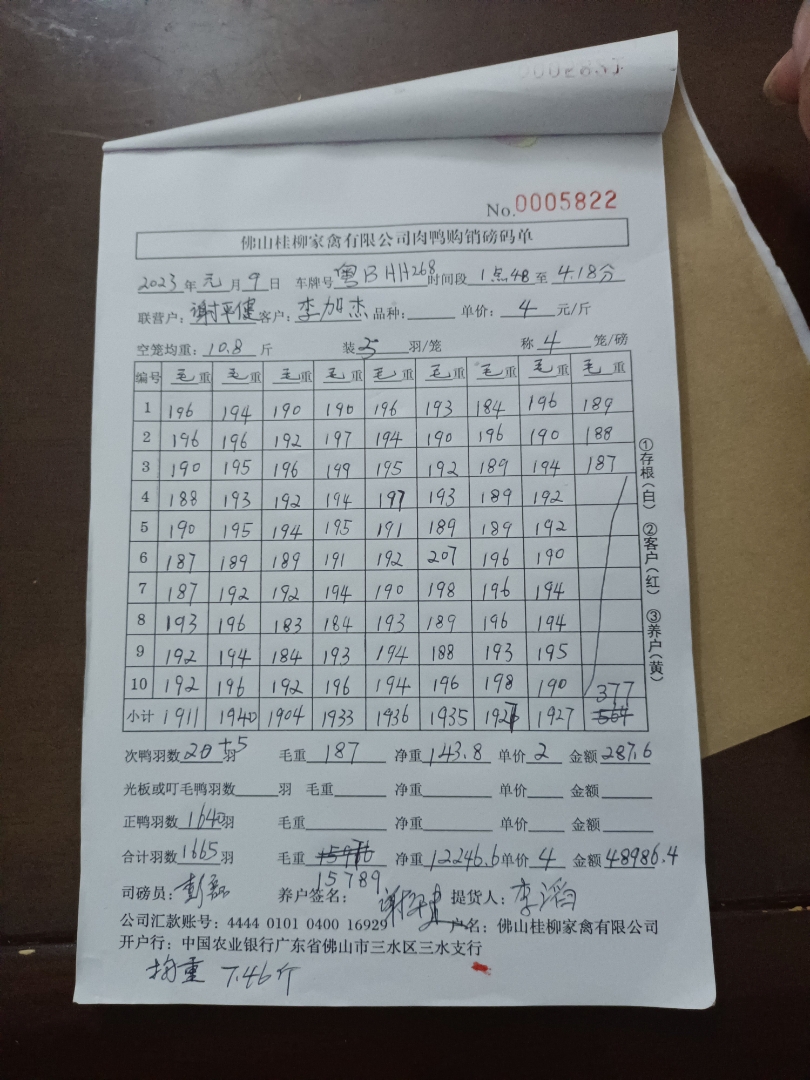 No.0005822
佛山桂柳家禽有限公司肉鸭购销磅码单
2023年元月9日 车牌号粤BHH268时间段1点48至4.18分
联营户:谢平健客户:李加杰品种: 单价:4元/斤
空笼均重:10.8斤 装5羽/笼 称4笼/磅
编号 毛重 毛重 毛重 毛重 毛重 毛重 毛重 毛重 毛重
1 196 194 190 190 196 193 184 196 189
2 196 196 192 197 194 190 196 190 188
3 190 195 196 199 195 192 189 194 187
4 188 193 192 194 197 193 189 192
5 190 195 194 195 191 189 189 192
6 187 189 189 191 192 207 196 190
7 187 192 192 194 190 198 196 194
8 193 196 183 184 193 189 196 194
9 192 194 184 193 194 188 193 195
10 192 196 192 196 194 196 198 190
377
小计 1911 1940 1904 1933 1936 1935 1927 564
次鸭羽数20+5羽 毛重187 净重143.8 单价2 金额287.6
光板或叮毛鸭羽数 羽 毛重 净重 单价 金额
正鸭羽数1640羽 毛重 净重 单价 金额
合计羽数1665羽 毛重 净重12246.6单价4 金额48986.4
15789
司磅员:彭磊 养户签名:谢平健 提货人:李滔
公司汇款账号:4444 0101 0400 16929 户名:佛山桂柳家禽有限公司
开户行:中国农业银行广东省佛山市三水区三水支行
均重 7.46斤
①存根(白) ②客户(红) ③养户(黄)